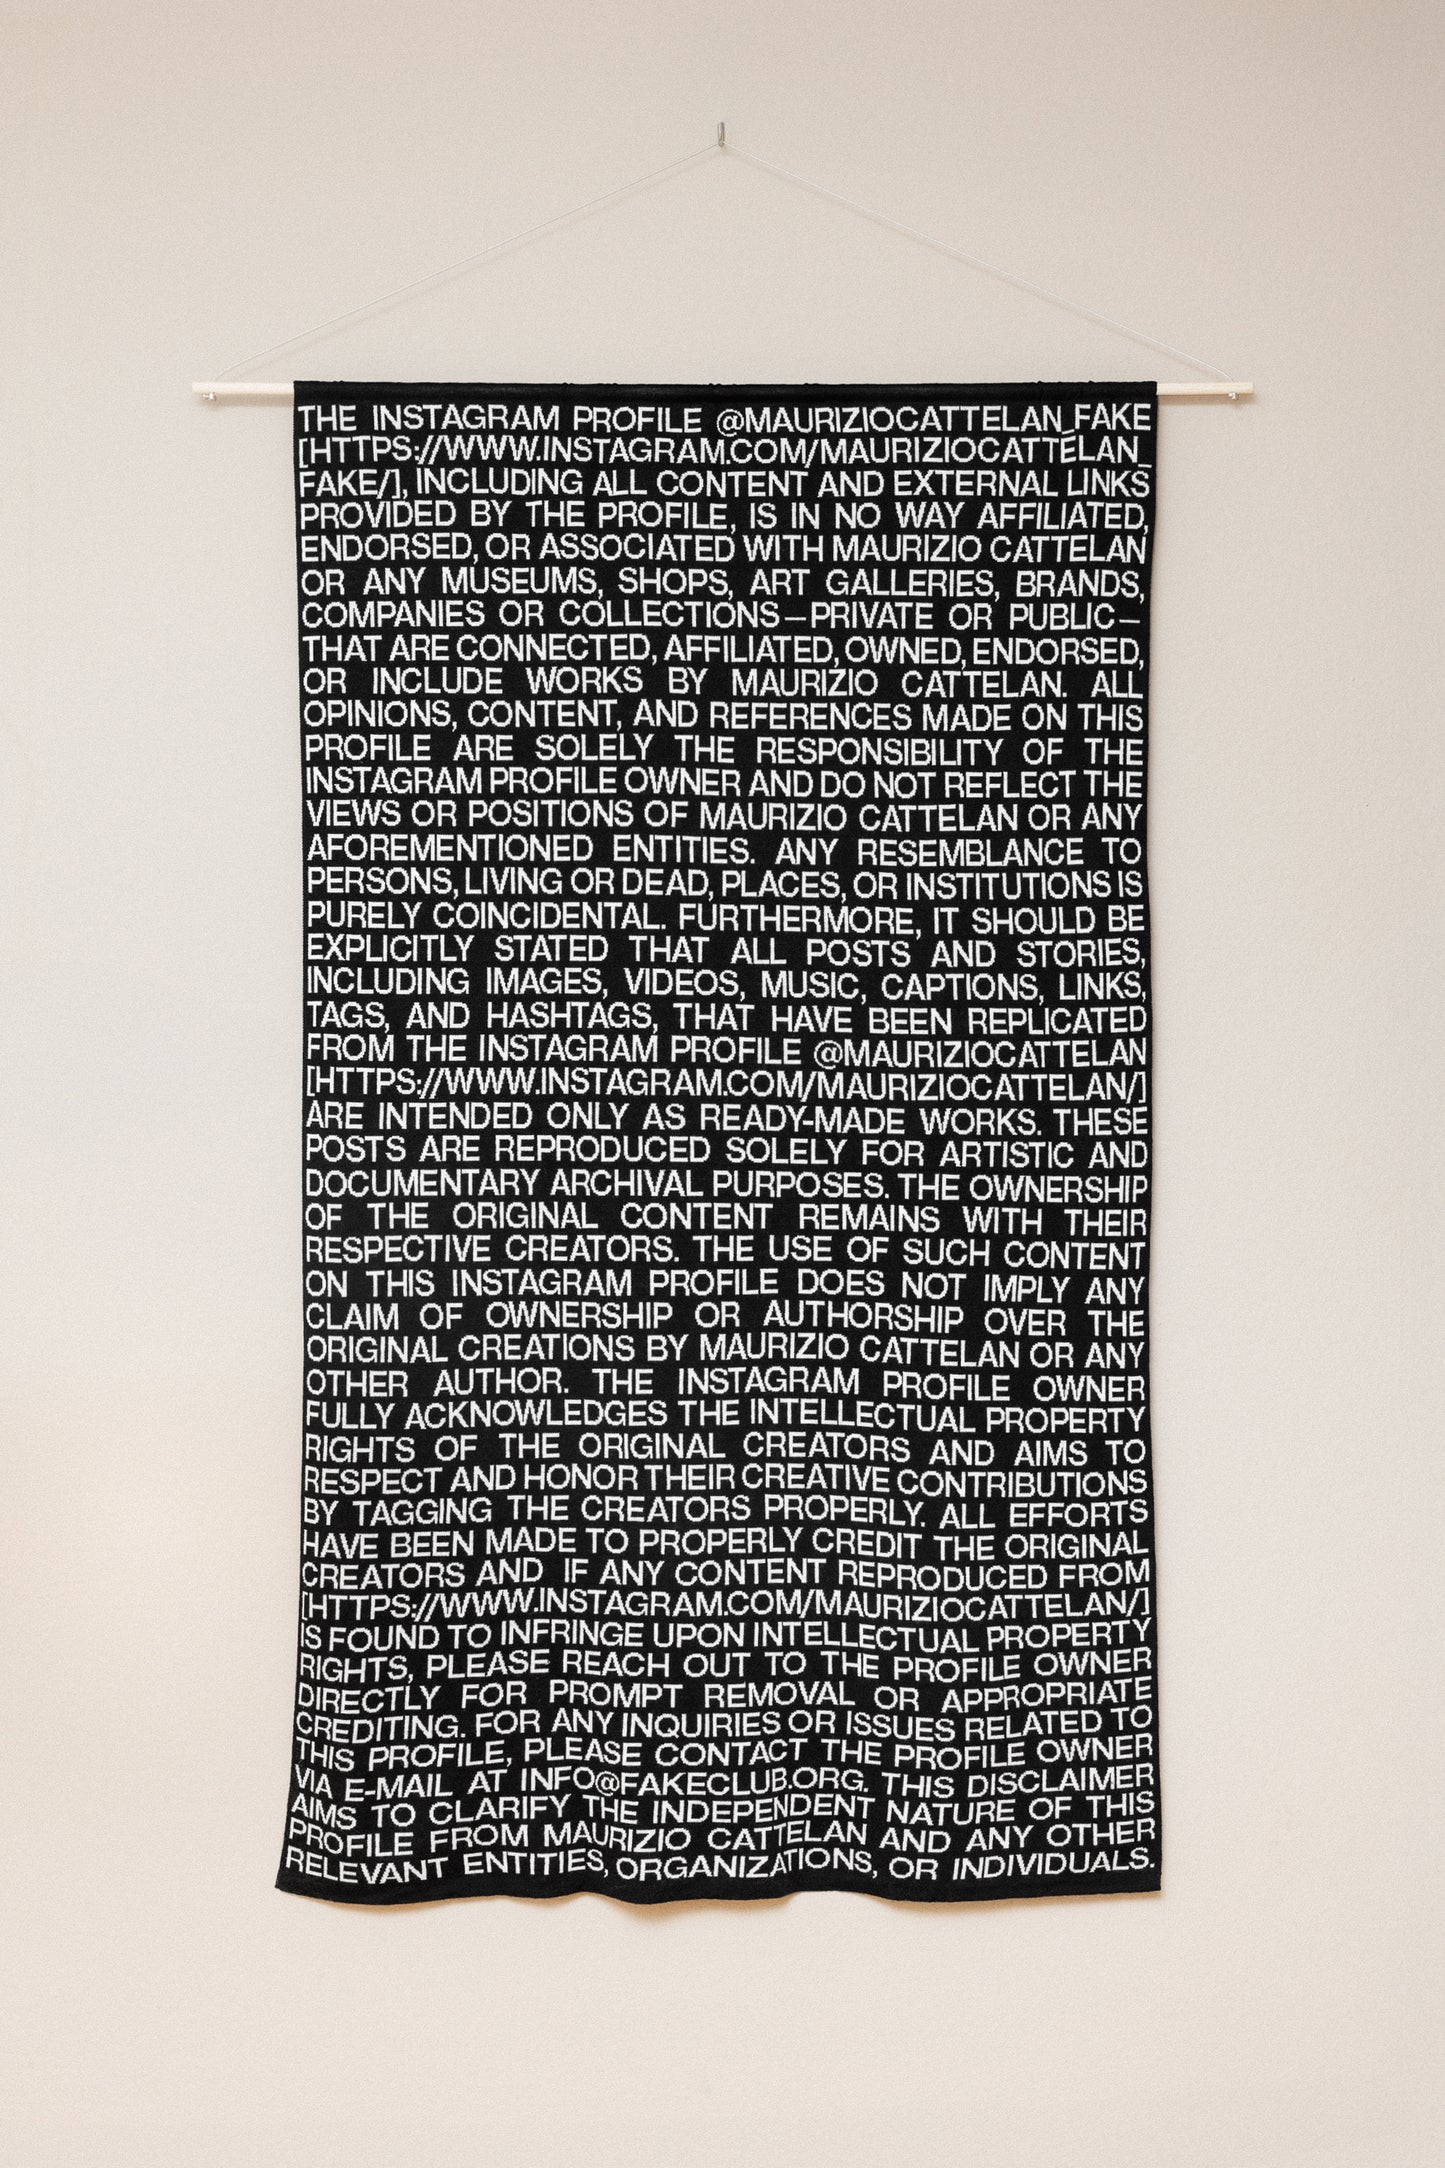 THE INSTAGRAM PROFILE @MAURIZIOCATTELAN_FAKE
[HTTPS://WWW.INSTAGRAM.COM/MAURIZIOCATTELAN_
FAKE/], INCLUDING ALL CONTENT AND EXTERNAL LINKS
PROVIDED BY THE PROFILE, IS IN NO WAY AFFILIATED,
ENDORSED, OR ASSOCIATED WITH MAURIZIO CATTELAN
OR ANY MUSEUMS, SHOPS, ART GALLERIES, BRANDS,
COMPANIES OR COLLECTIONS—PRIVATE OR PUBLIC—
THAT ARE CONNECTED, AFFILIATED, OWNED, ENDORSED,
OR INCLUDE WORKS BY MAURIZIO CATTELAN. ALL
OPINIONS, CONTENT, AND REFERENCES MADE ON THIS
PROFILE ARE SOLELY THE RESPONSIBILITY OF THE
INSTAGRAM PROFILE OWNER AND DO NOT REFLECT THE
VIEWS OR POSITIONS OF MAURIZIO CATTELAN OR ANY
AFOREMENTIONED ENTITIES. ANY RESEMBLANCE TO
PERSONS, LIVING OR DEAD, PLACES, OR INSTITUTIONS IS
PURELY COINCIDENTAL. FURTHERMORE, IT SHOULD BE
EXPLICITLY STATED THAT ALL POSTS AND STORIES,
INCLUDING IMAGES, VIDEOS, MUSIC, CAPTIONS, LINKS,
TAGS, AND HASHTAGS, THAT HAVE BEEN REPLICATED
FROM THE INSTAGRAM PROFILE @MAURIZIOCATTELAN
[HTTPS://WWW.INSTAGRAM.COM/MAURIZIOCATTELAN/]
ARE INTENDED ONLY AS READY-MADE WORKS. THESE
POSTS ARE REPRODUCED SOLELY FOR ARTISTIC AND
DOCUMENTARY ARCHIVAL PURPOSES. THE OWNERSHIP
OF THE ORIGINAL CONTENT REMAINS WITH THEIR
RESPECTIVE CREATORS. THE USE OF SUCH CONTENT
ON THIS INSTAGRAM PROFILE DOES NOT IMPLY ANY
CLAIM OF OWNERSHIP OR AUTHORSHIP OVER THE
ORIGINAL CREATIONS BY MAURIZIO CATTELAN OR ANY
OTHER AUTHOR. THE INSTAGRAM PROFILE OWNER
FULLY ACKNOWLEDGES THE INTELLECTUAL PROPERTY
RIGHTS OF THE ORIGINAL CREATORS AND AIMS TO
RESPECT AND HONOR THEIR CREATIVE CONTRIBUTIONS
BY TAGGING THE CREATORS PROPERLY. ALL EFFORTS
HAVE BEEN MADE TO PROPERLY CREDIT THE ORIGINAL
CREATORS AND IF ANY CONTENT REPRODUCED FROM
[HTTPS://WWW.INSTAGRAM.COM/MAURIZIOCATTELAN/]
IS FOUND TO INFRINGE UPON INTELLECTUAL PROPERTY
RIGHTS, PLEASE REACH OUT TO THE PROFILE OWNER
DIRECTLY FOR PROMPT REMOVAL OR APPROPRIATE
CREDITING. FOR ANY INQUIRIES OR ISSUES RELATED TO
THIS PROFILE, PLEASE CONTACT THE PROFILE OWNER
VIA E-MAIL AT INFO@FAKECLUB.ORG. THIS DISCLAIMER
AIMS TO CLARIFY THE INDEPENDENT NATURE OF THIS
PROFILE FROM MAURIZIO CATTELAN AND ANY OTHER
RELEVANT ENTITIES, ORGANIZATIONS, OR INDIVIDUALS.